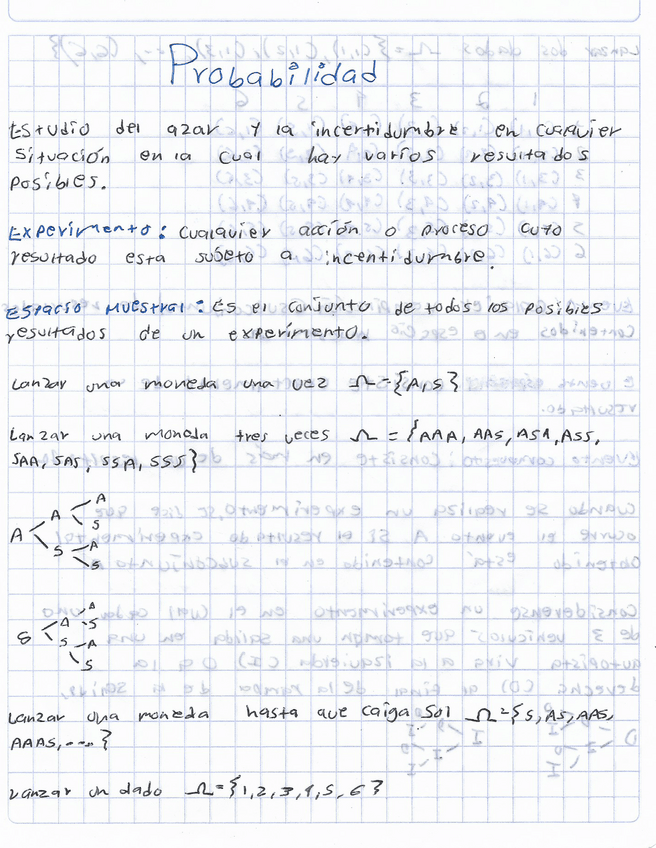 Probabilidad
Estudio del azar y la incertidumbre en cualquier
situación en la cual hay varios resultados
posibles.
Experimento: Cualquier acción o proceso cuyo
resultado esta sujeto a incentidurmbre.
Espacio Muestral: Es el conjunto de todos los posibles
resultados de un experimento.
Lanzar una moneda una vez Ω={A,S}
Lanzar una moneda tres veces Ω = {AAA, AAS, ASA, ASS,
SAA, SAS, SSA, SSS}
A
A S
A
S A
S
A
S A S
S A
S
Lanzar una moneda hasta que caiga Sol Ω={S, AS, AAS,
AAAS, ---- }
Lanzar un dado Ω={1,2,3,4,5,6}